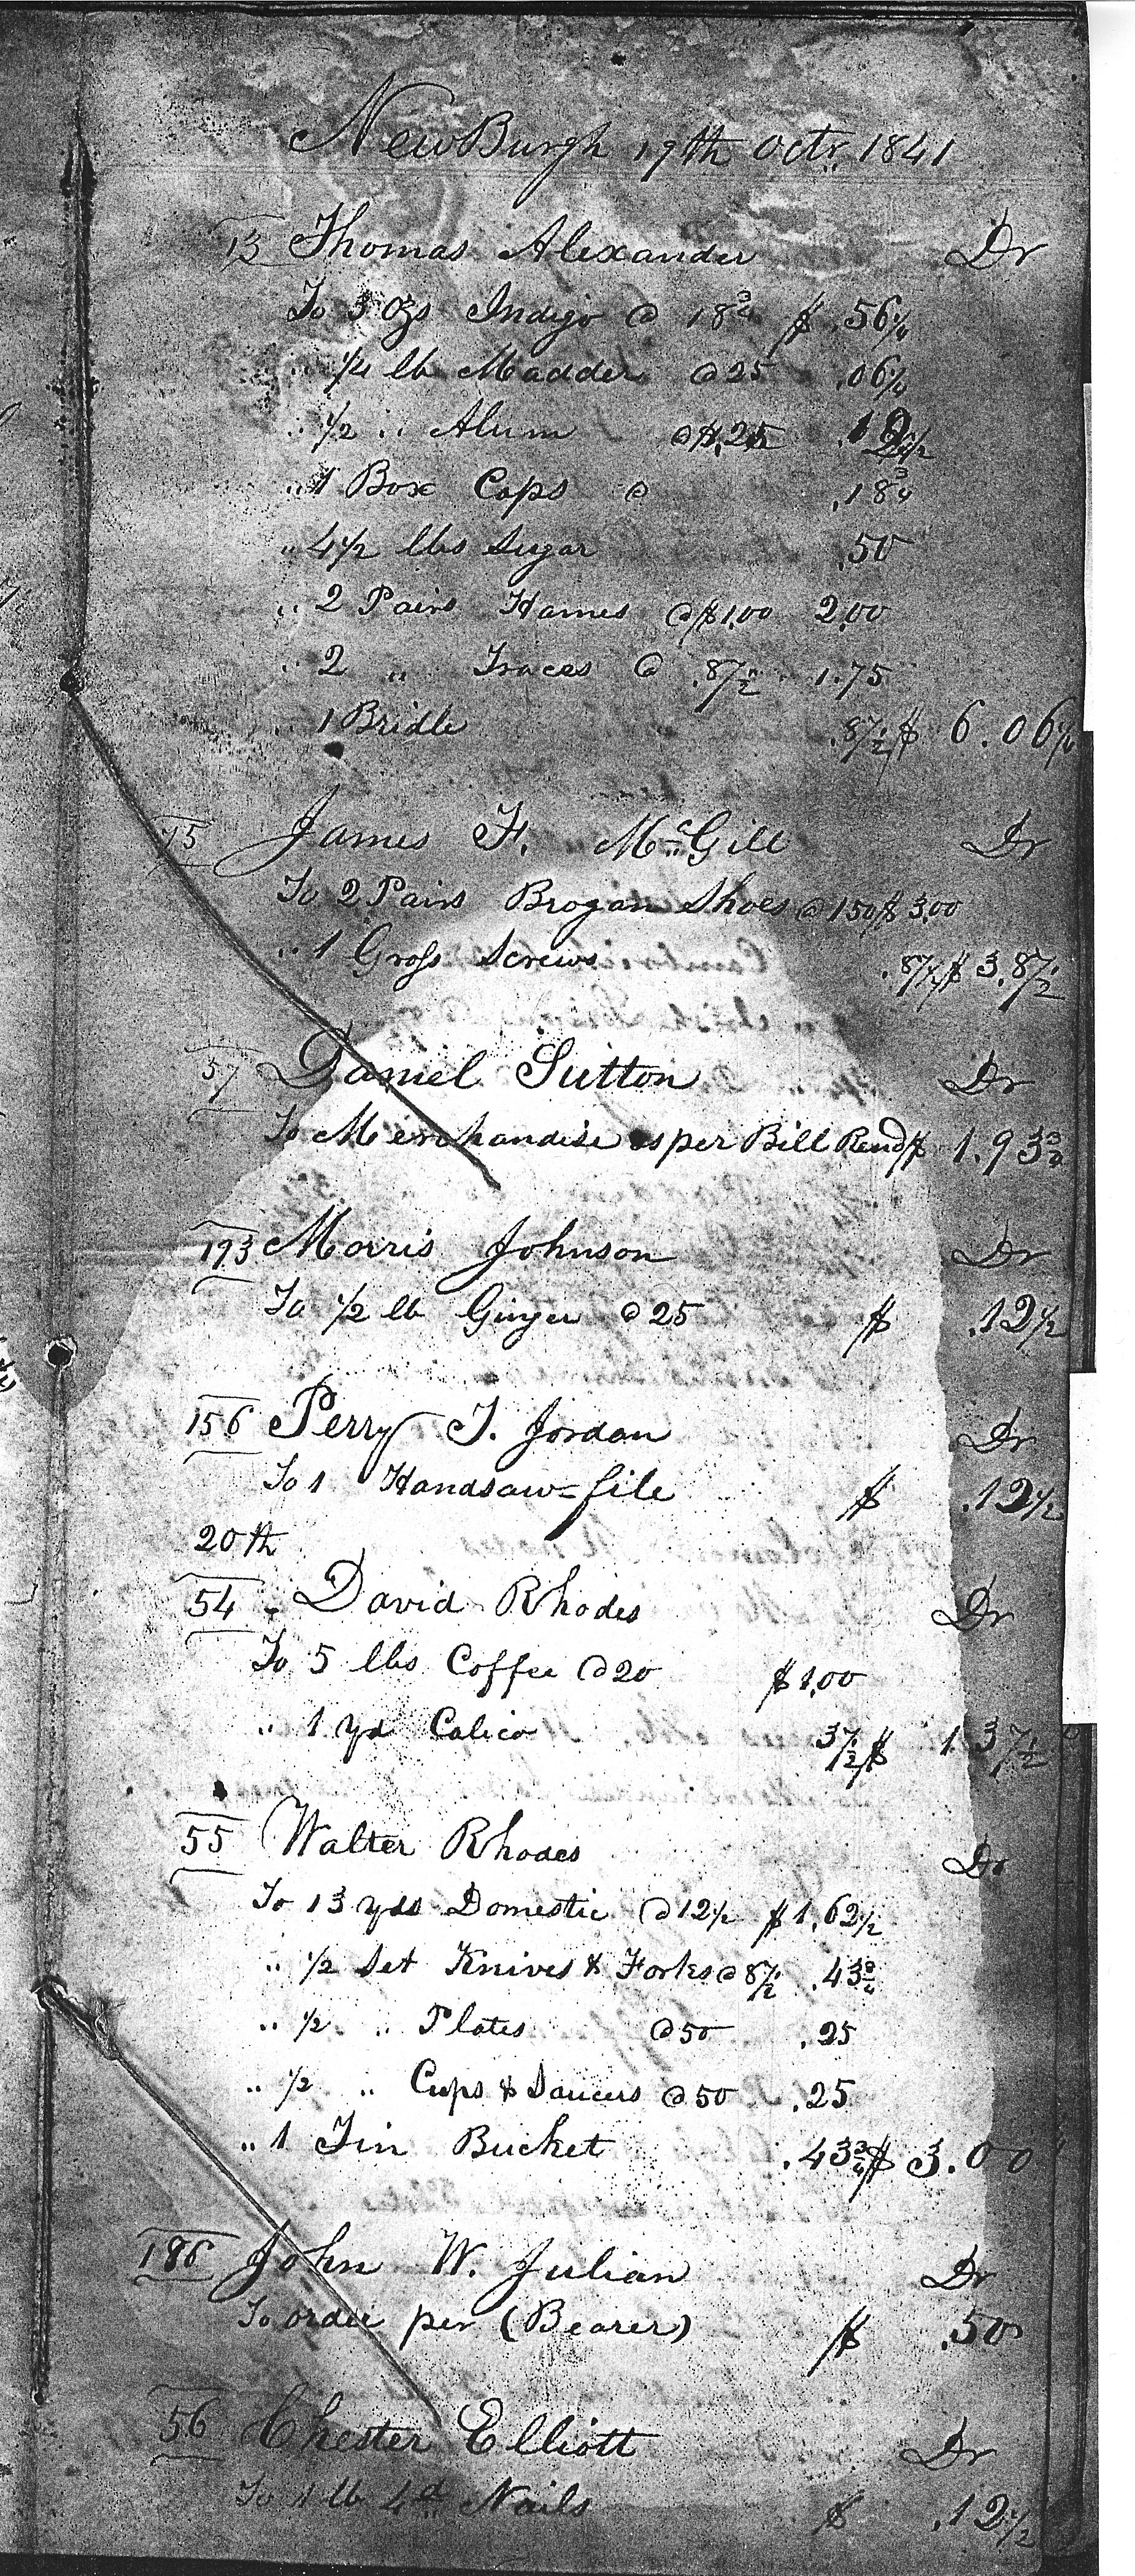 NewBurgh 19th Octr. 1841
13 Thomas Alexander Dr
To 3 Ozs Indigo @ 18¾ $ .56¼
" ¼ lb Madder @ 25 .06¼
" ½ " Alum @ $.25 .12½
" 1 Box Caps @ .18¾
" 4½ lbs Sugar .50
" 2 Pairs Hames @ $1.00 2.00
" 2 " Traces @ .87½ 1.75
" 1 Bridle .87½ $ 6.06¼
75 James F. McGill Dr
To 2 Pairs Brogan Shoes @ 150 $ 3.00
" 1 Gross Screws .87½ $ 3.87½
57 Daniel Sutton Dr
To Merchandise as per Bill Rend $ 1.93¾
193 Morris Johnson Dr
To ½ lb Ginger @ 25 $ .12½
156 Perry T. Jordan Dr
To 1 Handsaw=file $ .12½
20th
54 - David Rhodes Dr
To 5 lbs Coffee @ 20 $ 1.00
" 1 yd Calico 37½ $ 1.37½
55 Walter Rhodes Dr
To 13 yds Domestic @ 12½ $ 1.62½
" ½ Set Knives & Forks @ 87½ .43¾
" ½ " Plates @ 50 .25
" ½ " Cups & Saucers @ 50 .25
" 1 Tin Bucket .43¾ $ 3.00
186 John W. Julian Dr
To order per (Bearer) $ .50
56 Chester Elliott Dr
To 1 lb 4d Nails $ .12½